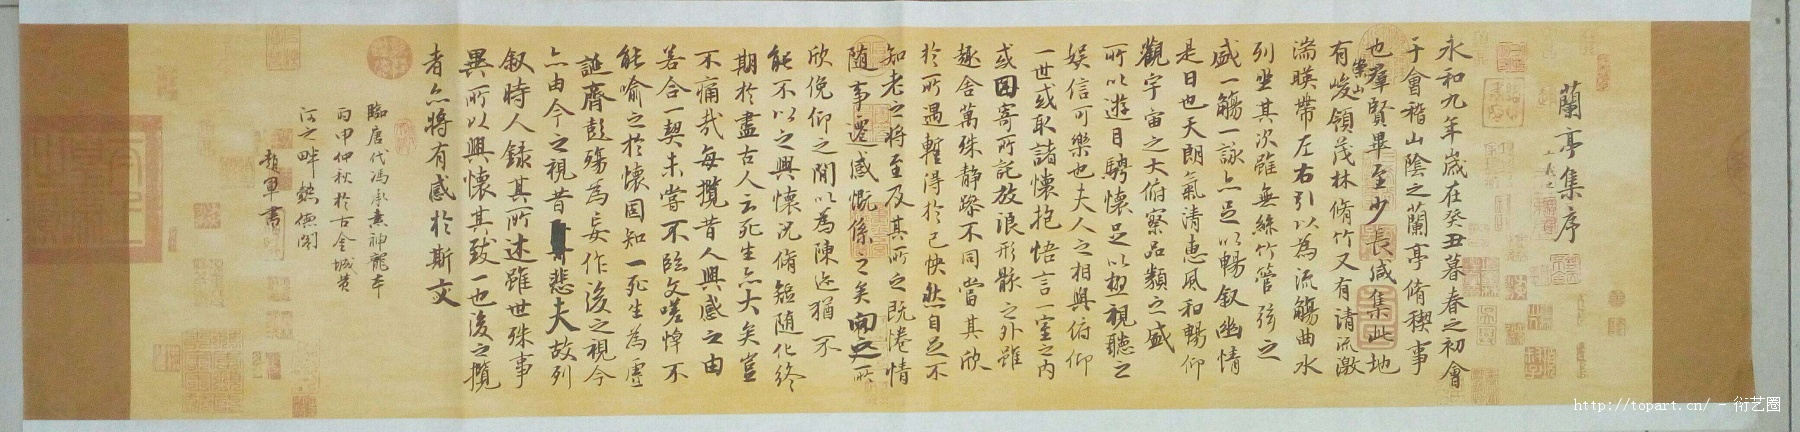 蘭亭集序
永和九年歲在癸丑暮春之初會
于會稽山陰之蘭亭脩稧事
也羣賢畢至少長咸集此地
有崇山峻領茂林脩竹又有清流激
湍暎帶左右引以為流觴曲水
列坐其次雖無絲竹管弦之
盛一觴一詠亦足以暢叙幽情
是日也天朗氣清惠風和暢仰
觀宇宙之大俯察品類之盛
所以遊目騁懷足以極視聽之
娛信可樂也夫人之相與俯仰
一世或取諸懷抱悟言一室之內
或因寄所託放浪形骸之外雖
趣舍萬殊静躁不同當其欣
於所遇暫得於己快然自足不
知老之將至及其所之既惓情
隨事遷感慨係之矣向之所
欣俛仰之閒以為陳迹猶不
能不以之興懷況脩短隨化終
期於盡古人云死生亦大矣豈
不痛哉每攬昔人興感之由
若合一契未嘗不臨文嗟悼不
能喻之於懷固知一死生為虛
誕齊彭殤為妄作後之視今
亦由今之視昔悲夫故列
叙時人錄其所述雖世殊事
異所以興懷其致一也後之攬
者亦將有感於斯文
臨唐代馮承素神龍本
丙申仲秋於古金城黃
河之畔
趙軍書
http://topart.cn/ - 衍艺圈